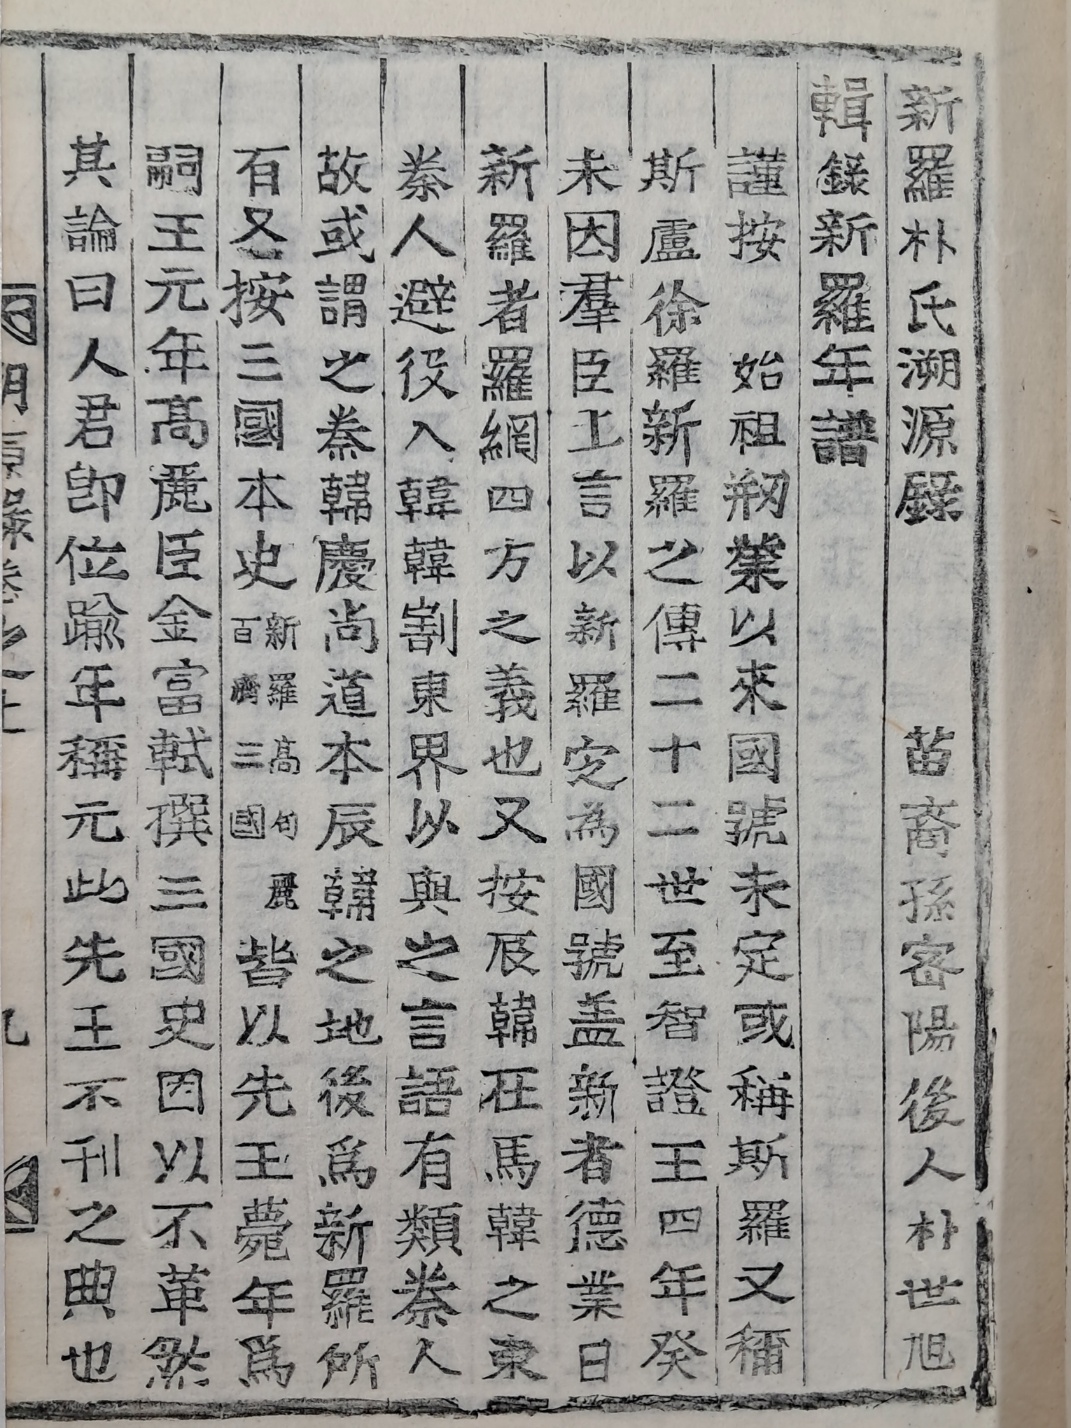 新羅朴氏溯源錄 苗裔孫密陽後人朴世旭
輯錄新羅年譜
謹按 始祖刱業以來國號未定或稱斯羅又稱
斯盧徐羅新羅之傳二十二世至智證王四年癸
未因羣臣上言以新羅定為國號盖新者德業日
新羅者羅網四方之義也又按辰韓在馬韓之東
秦人避役入韓韓割東界以與之言語有類秦人
故或謂之秦韓慶尚道本辰韓之地後爲新羅所
有又按三國本史新羅高句麗百濟三國皆以先王薨年爲
嗣王元年高麗臣金富軾撰三國史因以不革然
其論曰人君卽位踰年稱元此先王不刊之典也
溯源錄卷之上 九